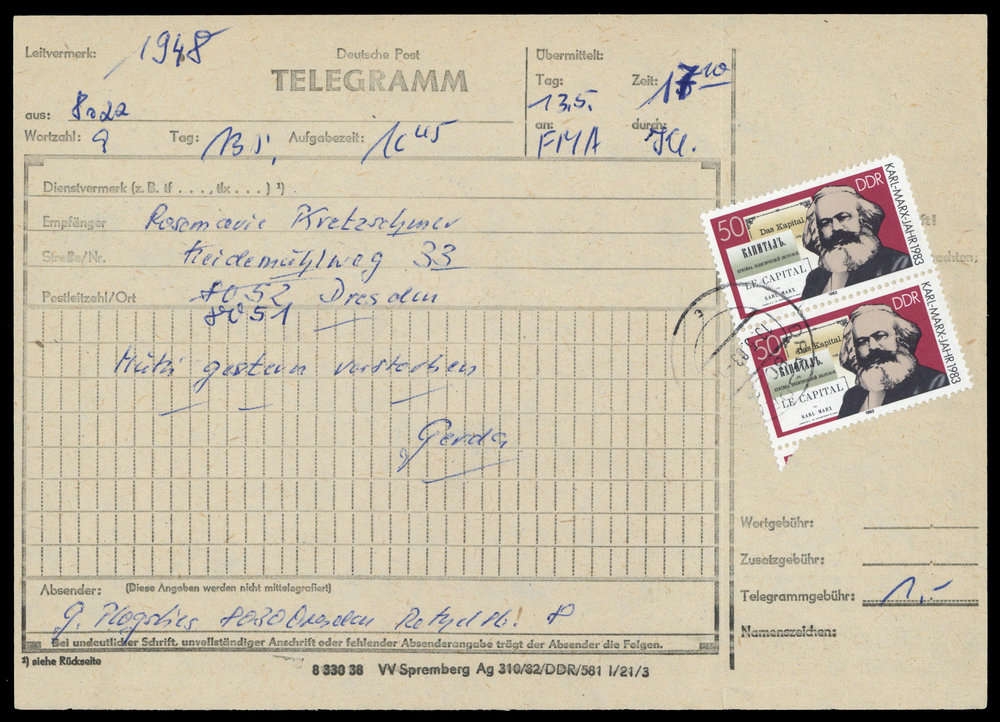 Leitvermerk: 1948
Deutsche Post
TELEGRAMM
aus: 8022
Wortzahl: 9 Tag: 13.5. Aufgabezeit: 16 45
Übermittelt:
Tag: Zeit:
13.5. 17 10
an: durch:
FMA
Dienstvermerk (z. B. tf . . . , tlx . . . ) ¹)
Empfänger Rosemarie Kretzschmer
Straße/Nr. Heidemühlweg 33
Postleitzahl/Ort 8052 Dresden
8051
Mutti gestern verstorben
Gerda
Absender: (Diese Angaben werden nicht mittelegrafiert)
G. 8020 Dresden 8
Bei undeutlicher Schrift, unvollständiger Anschrift oder fehlender Absenderangabe trägt der Absender die Folgen.
¹) siehe Rückseite
8 330 38 VV Spremberg Ag 310/82/DDR/581 I/21/3
50 DDR
KARL-MARX-JAHR 1983
Das Kapital
КАПИТАЛЪ.
LE CAPITAL
KARL MARX
1983
50 DDR
KARL-MARX-JAHR 1983
Das Kapital
КАПИТАЛЪ.
LE CAPITAL
KARL MARX
1983
Wortgebühr:
Zusatzgebühr:
Telegrammgebühr: 1,-
Namenszeichen: